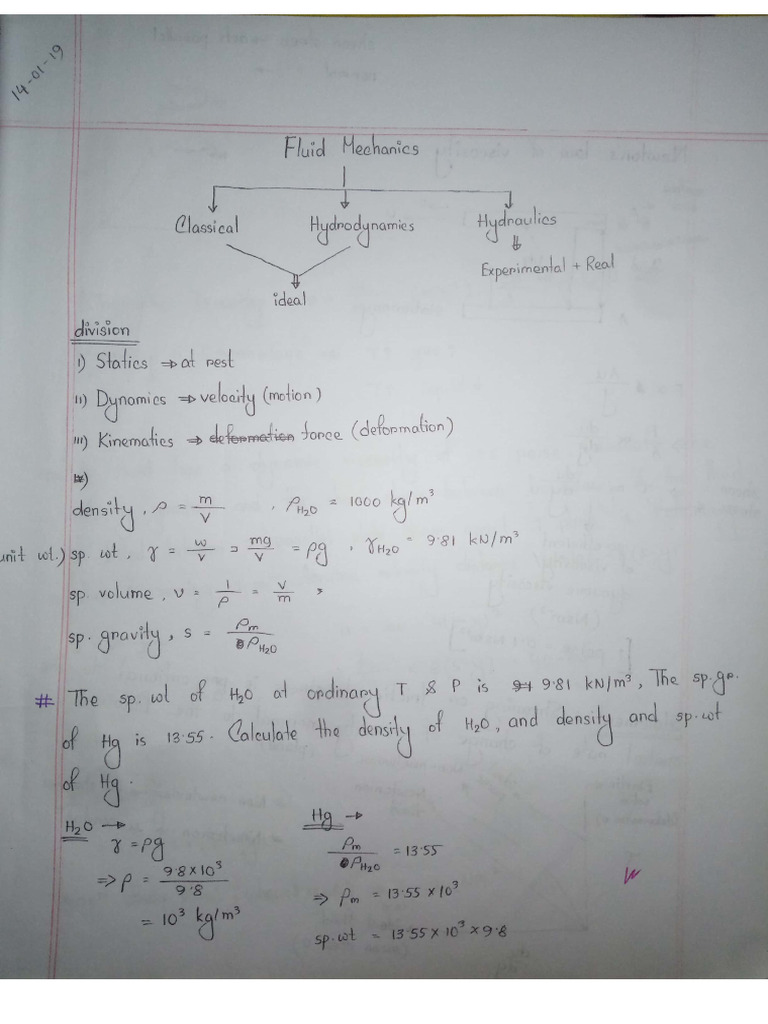 14-01-19
Fluid Mechanics
Classical Hydrodynamics Hydraulics
Experimental + Real
ideal
division
i) Statics ⇒ at rest
ii) Dynamics ⇒ velocity (motion)
iii) Kinematics ⇒ deformation force (deformation)
iv)
density, ρ = m/V , ρH₂O = 1000 kg/m³
unit wt.) sp. wt, γ = w/v = mg/V = ρg , γH₂O = 9.81 kN/m³
sp. volume, v = 1/ρ = V/m ,
sp. gravity, s = ρm/ρH₂O
# The sp. wt of H₂O at ordinary T & P is 9.81 kN/m³, The sp. gr.
of Hg is 13.55. Calculate the density of H₂O, and density and sp. wt
of Hg.
H₂O → Hg →
γ = ρg ρm/ρH₂O = 13.55
⇒ ρ = 9.8 × 10³/9.8 ⇒ ρm = 13.55 × 10³
= 10³ kg/m³ sp. wt = 13.55 × 10³ × 9.8